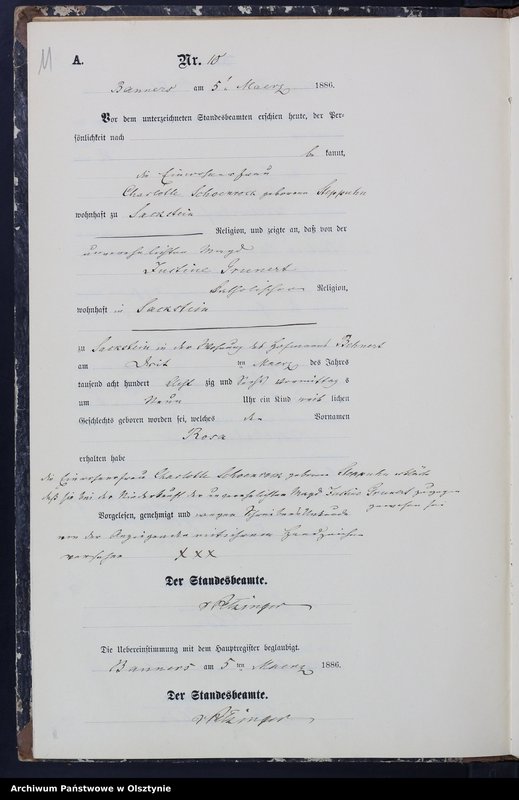 11
A. Nr. 10
Banners am 5 ten Maerz 1886.
Vor dem unterzeichneten Standesbeamten erschien heute, der Per-
sönlichkeit nach
be kannt,
die Einwohnerfrau
Charlotte Schoenrock geborene Steppuhn
wohnhaft zu Sackstein
Religion, und zeigte an, daß von der
unverehelichten Magd
Justine Grunert
katholischer Religion,
wohnhaft in Sackstein
zu Sackstein in der Wohnung des
am Drit ten Maerz des Jahrs
tausend acht hundert acht zig und Sechs Vormittag s
um Neun Uhr ein Kind weib lichen
Geschlechts geboren worden sei, welches den Vornamen
Rosa
erhalten habe
die Einwohnerfrau Charlotte Schoenrock geborene Steppuhn erklärte
daß sie bei der Niederkunft der unverehelichten Magd Justine Grunert zugegen
gewesen sei
Vorgelesen, genehmigt und wegen Schreibensunkunde
von der Anzeigenden mit ihrem Handzeichen
versehen X X X
Der Standesbeamte.
Die Uebereinstimmung mit dem Hauptregister beglaubigt.
Banners am 5 ten Maerz 1886.
Der Standesbeamte.
Archiwum Państwowe w Olsztynie